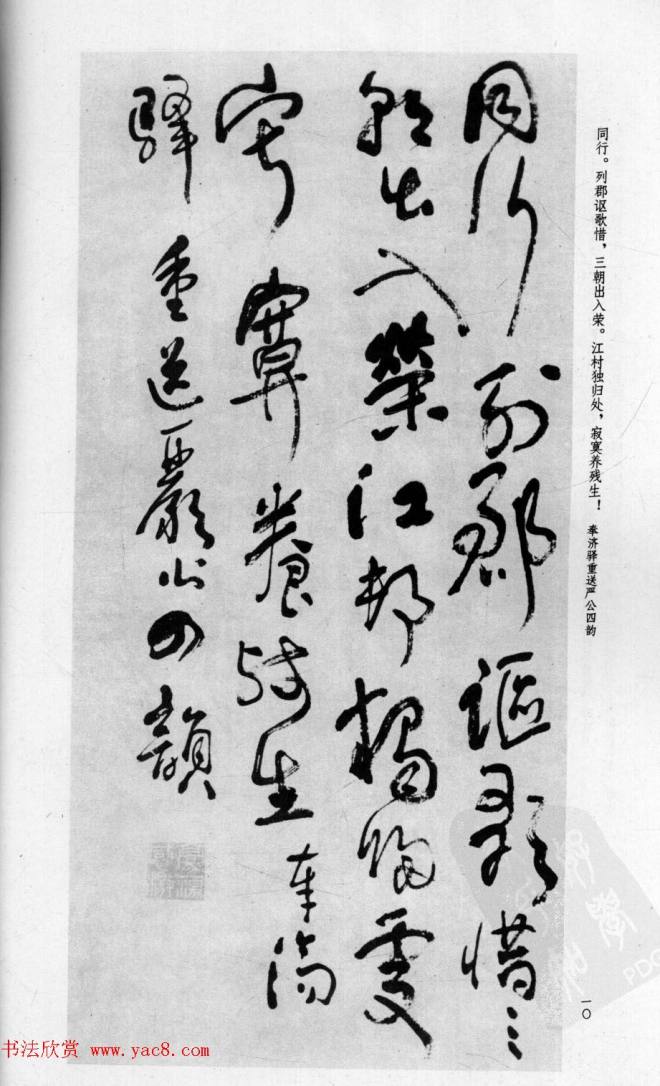 同行列郡謳歌惜三
朝出入榮江邨獨歸處
寂寞養殘生奉濟
驛重送嚴公四韻
同行。列郡讴歌惜，三朝出入荣。江村独归处，寂寞养残生！ 奉济驿重送严公四韵
一〇
书法欣赏 www.yac8.com